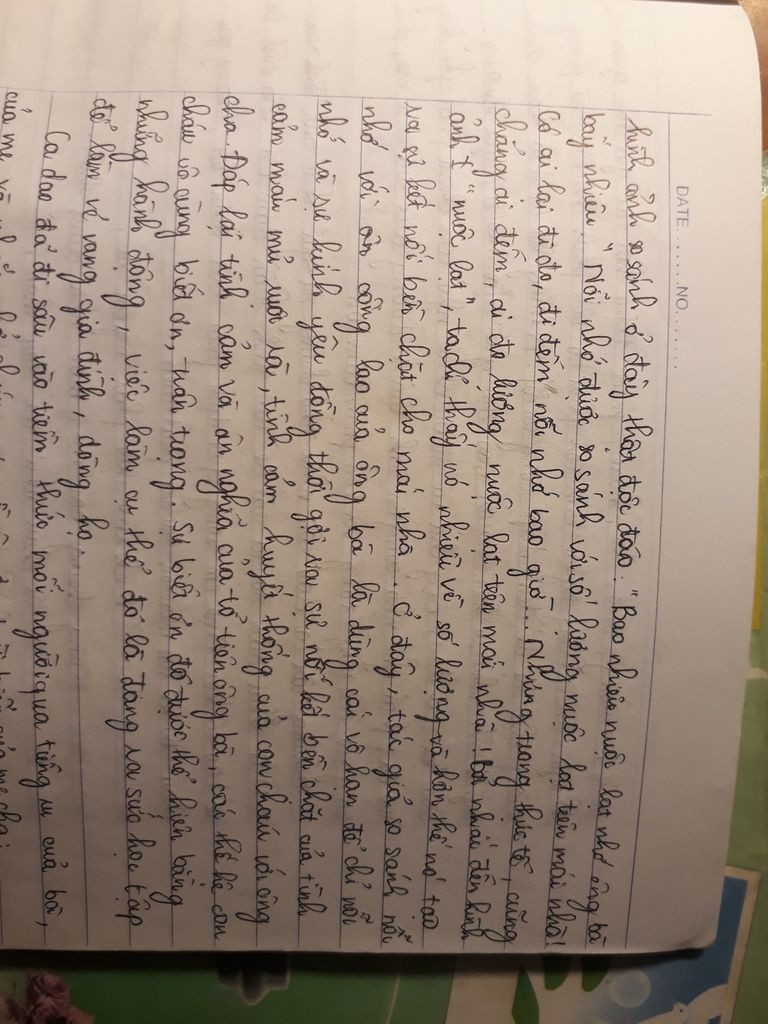 DATE ....... NO. ........
hình ảnh so sánh ở đây thật độc đáo. "Bao nhiêu nuộc lạt nhớ ông bà
bấy nhiêu". Nỗi nhớ được so sánh với số lượng nuộc lạt trên mái nhà!
Có ai lại đi đo, đi đếm nỗi nhớ bao giờ... Nhưng trong thực tế, cũng
chẳng ai đếm, ai đo lường nuộc lạt trên mái nhà! Bởi nhắc đến hình
ảnh "nuộc lạt", ta chỉ thấy nó nhiều về số lượng và hơn thế nó tạo
ra sự kết nối bền chặt cho mái nhà. Ở đây, tác giả so sánh nỗi
nhớ với ân công lao của ông bà là dùng cái vô hạn để chỉ nỗi
nhớ và sự kính yêu đồng thời gợi ra sự nối kết bền chặt của tình
cảm máu mủ ruột rà, tình cảm huyết thống của con cháu với ông
cha. Đáp lại tình cảm và ân nghĩa của tổ tiên ông bà, các thế hệ con
cháu vô cùng biết ơn, trân trọng. Sự biết ơn đó được thể hiện bằng
những hành động, việc làm cụ thể đó là đang ra sức học tập
để làm vẻ vang gia đình, dòng họ.
Ca dao đã đi sâu vào tiềm thức mỗi người qua tiếng ru của bà,
của mẹ và